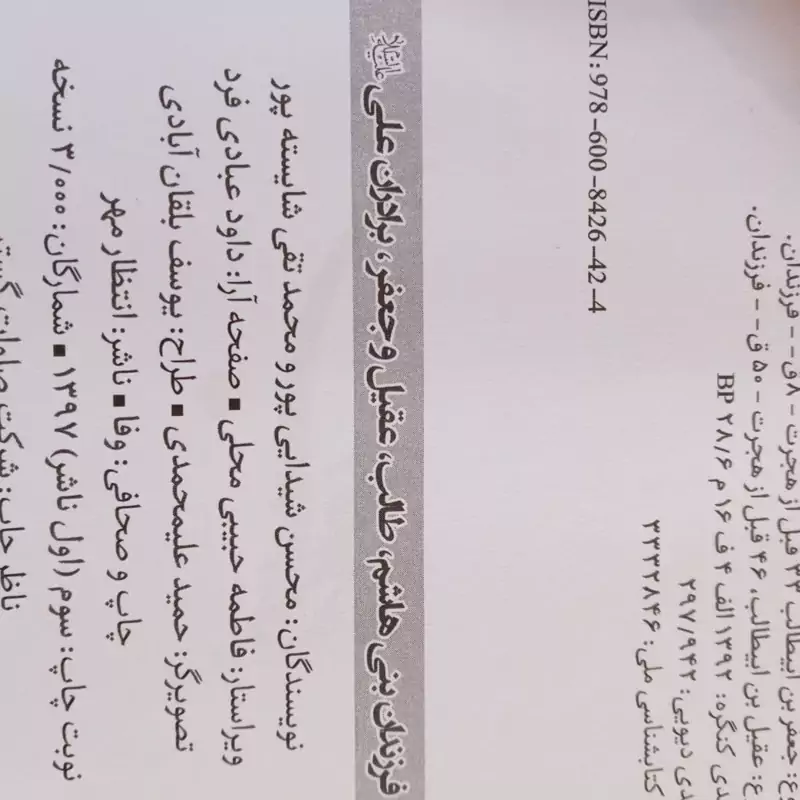 جعفر بن ابیطالب ۳۳ قبل از هجرت - ۸ق - - فرزندان.
عقیل بن ابیطالب، ۴۶ قبل از هجرت - ۵۰ ق- - فرزندان.
کنگره: ۱۳۹۲ الف ۴ ف ۱۶ م ۲۸/۶ BP
دیویی: ۲۹۷/۹۴۲
کتابشناسی ملی: ۳۳۳۲۸۴۶
ISBN: 978-600-8426-42-4
فرزندان بنی هاشم، طالب، عقیل و جعفر، برادران علی علیه‌السلام
نویسندگان: محسن شیدایی پور و محمد تقی شایسته پور
ویراستار: فاطمه حبیبی محلی ■ صفحه آرا: داود عبادی فرد
تصویرگر: حمید علیمحمدی ■ طراح: یوسف بلقان آبادی
چاپ و صحافی: وفا ■ ناشر: انتظار مهر
نوبت چاپ: سوم (اول ناشر) ۱۳۹۷ ■ شمارگان: ۳/۰۰۰ نسخه
ناظر چاپ: شرکت